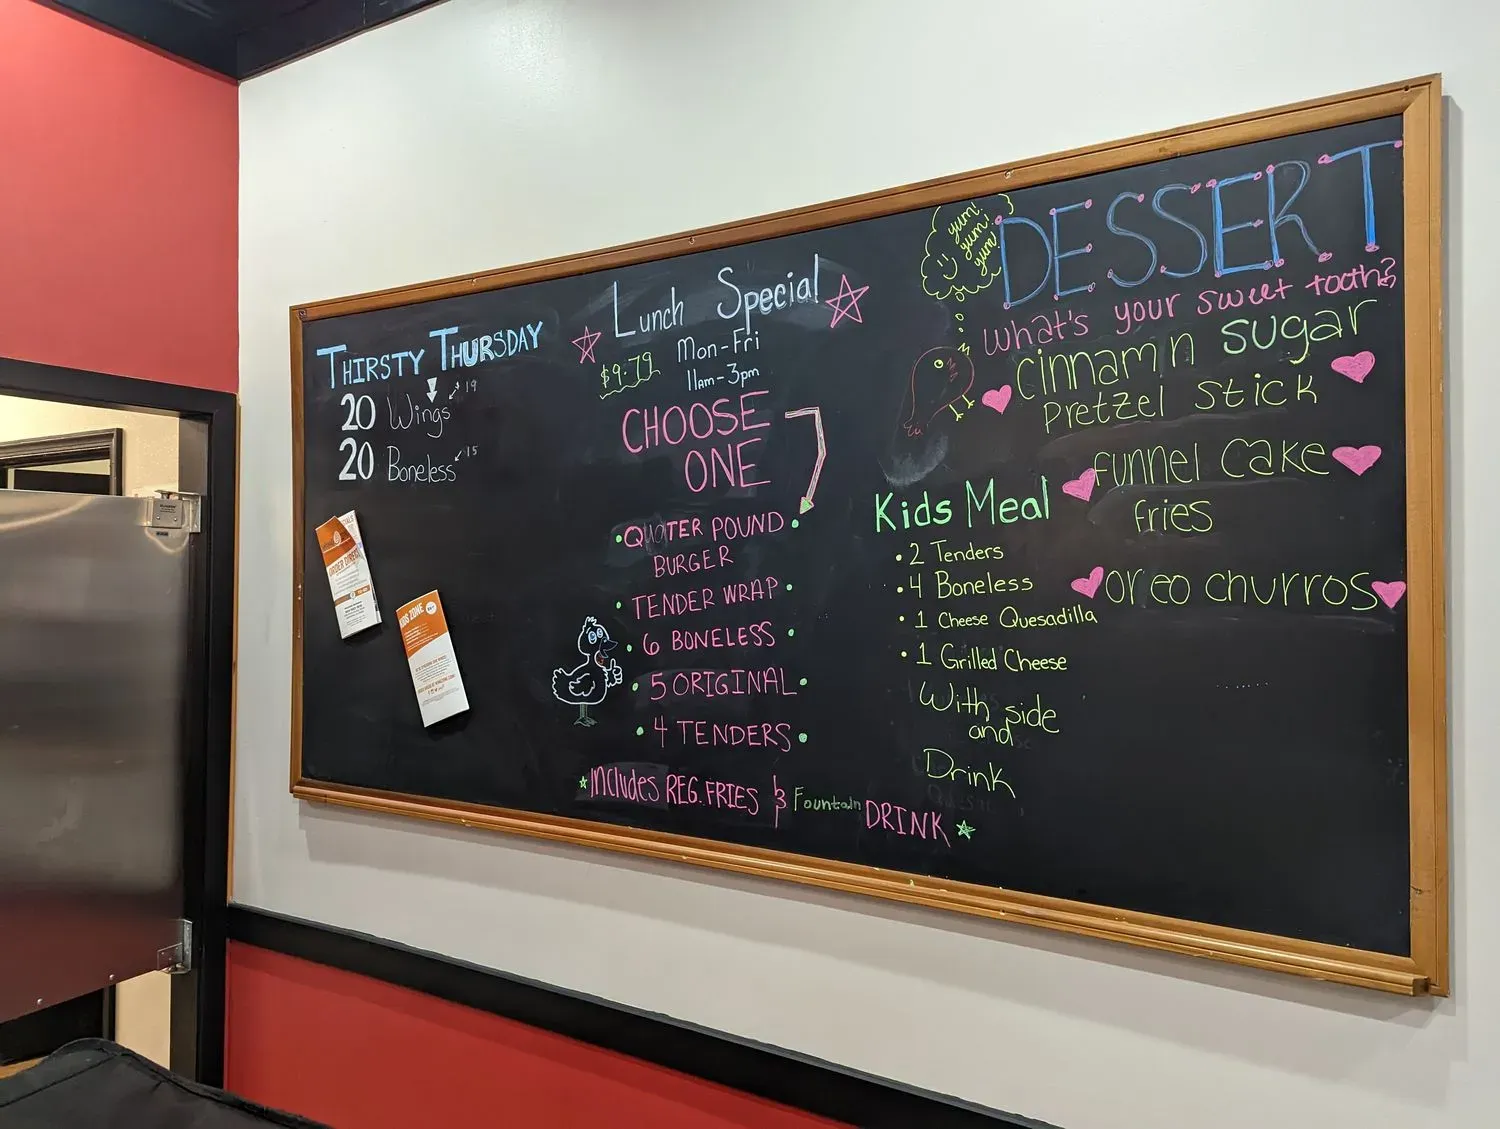 THIRSTY THURSDAY
20 Wings $19
20 Boneless 15
ORDER DIRECT
KIDS ZONE
Lunch Special
$9.79
Mon-Fri
11am-3pm
CHOOSE
ONE
• QUATER POUND •
BURGER
• TENDER WRAP •
• 6 BONELESS •
• 5 ORIGINAL •
• 4 TENDERS •
INCLUDES REG. FRIES & Fountain DRINK
yum!
yum!
yum!
DESSERT
What's your sweet tooth?
cinnamon sugar
pretzel stick
funnel cake
fries
oreo churros
Kids Meal
• 2 Tenders
• 4 Boneless
• 1 Cheese Quesadilla
• 1 Grilled Cheese
With side
and
Drink